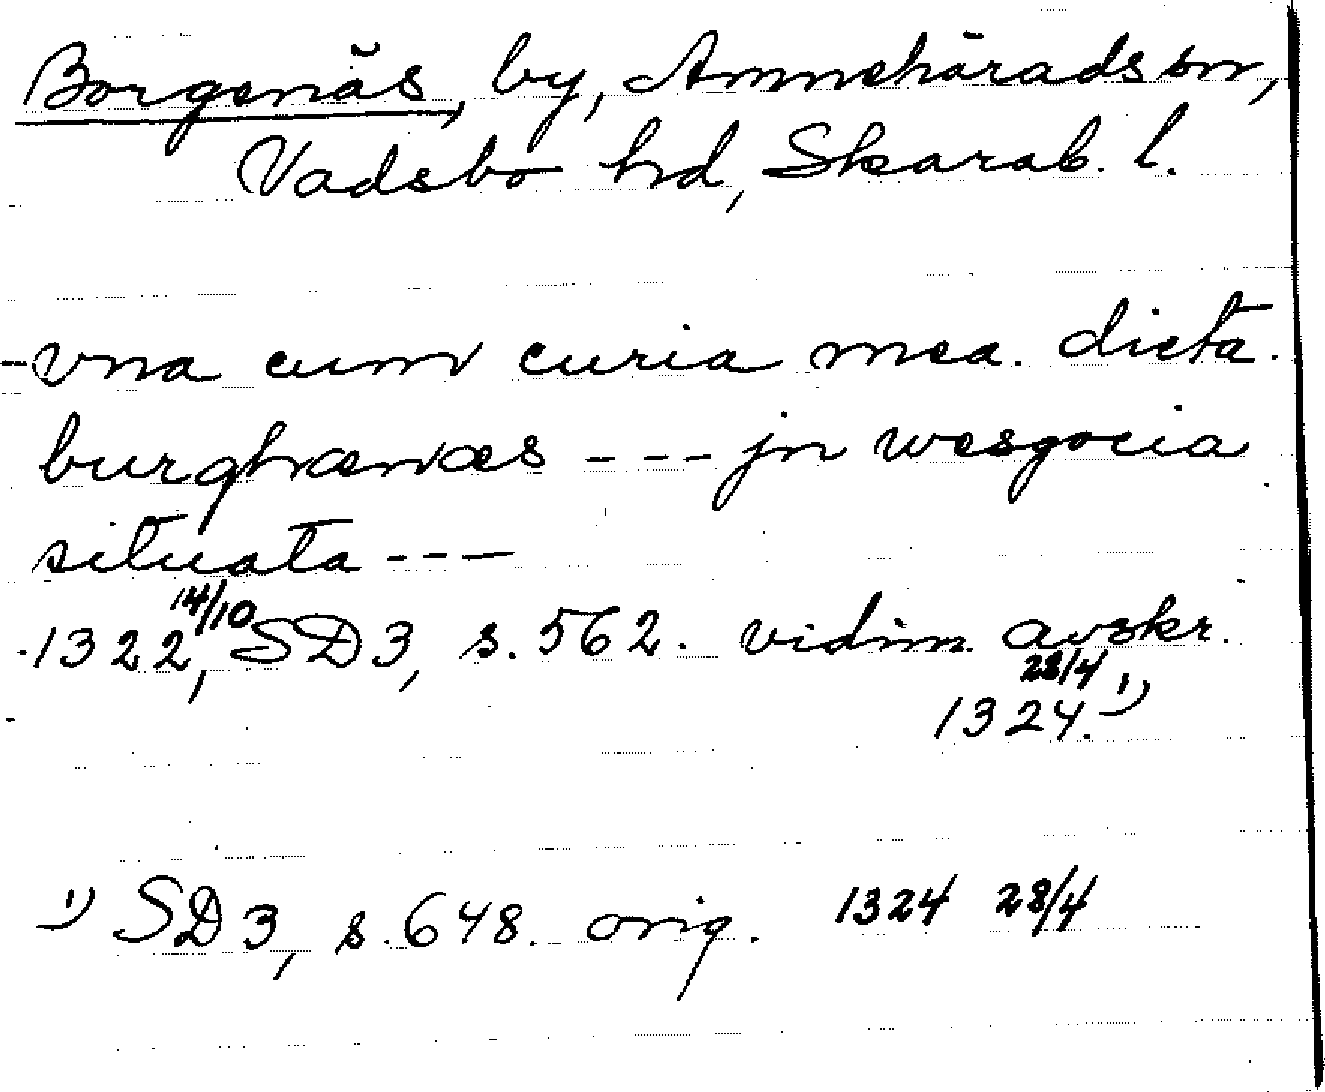 Borgenäs, by, Amnehärads sn,
Vadsbo hd, Skarab. l.
-vna cum curia mea. dicta.
burghænæs --- jn wesgocia
situata ---
1322 14/10, SD 3, s. 562. vidim. avskr.
1324 28/4. 1)
1) SD 3, s. 648. orig. 1324 28/4